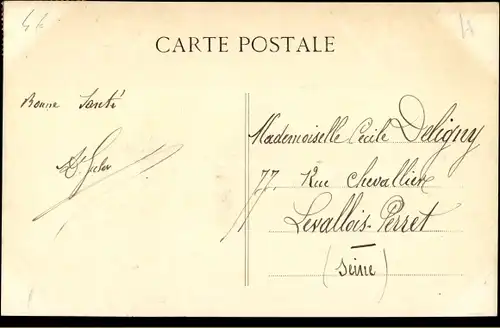 CARTE POSTALE
Bonne Santé
Mademoiselle Cécile Deligny
77, Rue Chevallier
Levallois-Perret
(Seine)